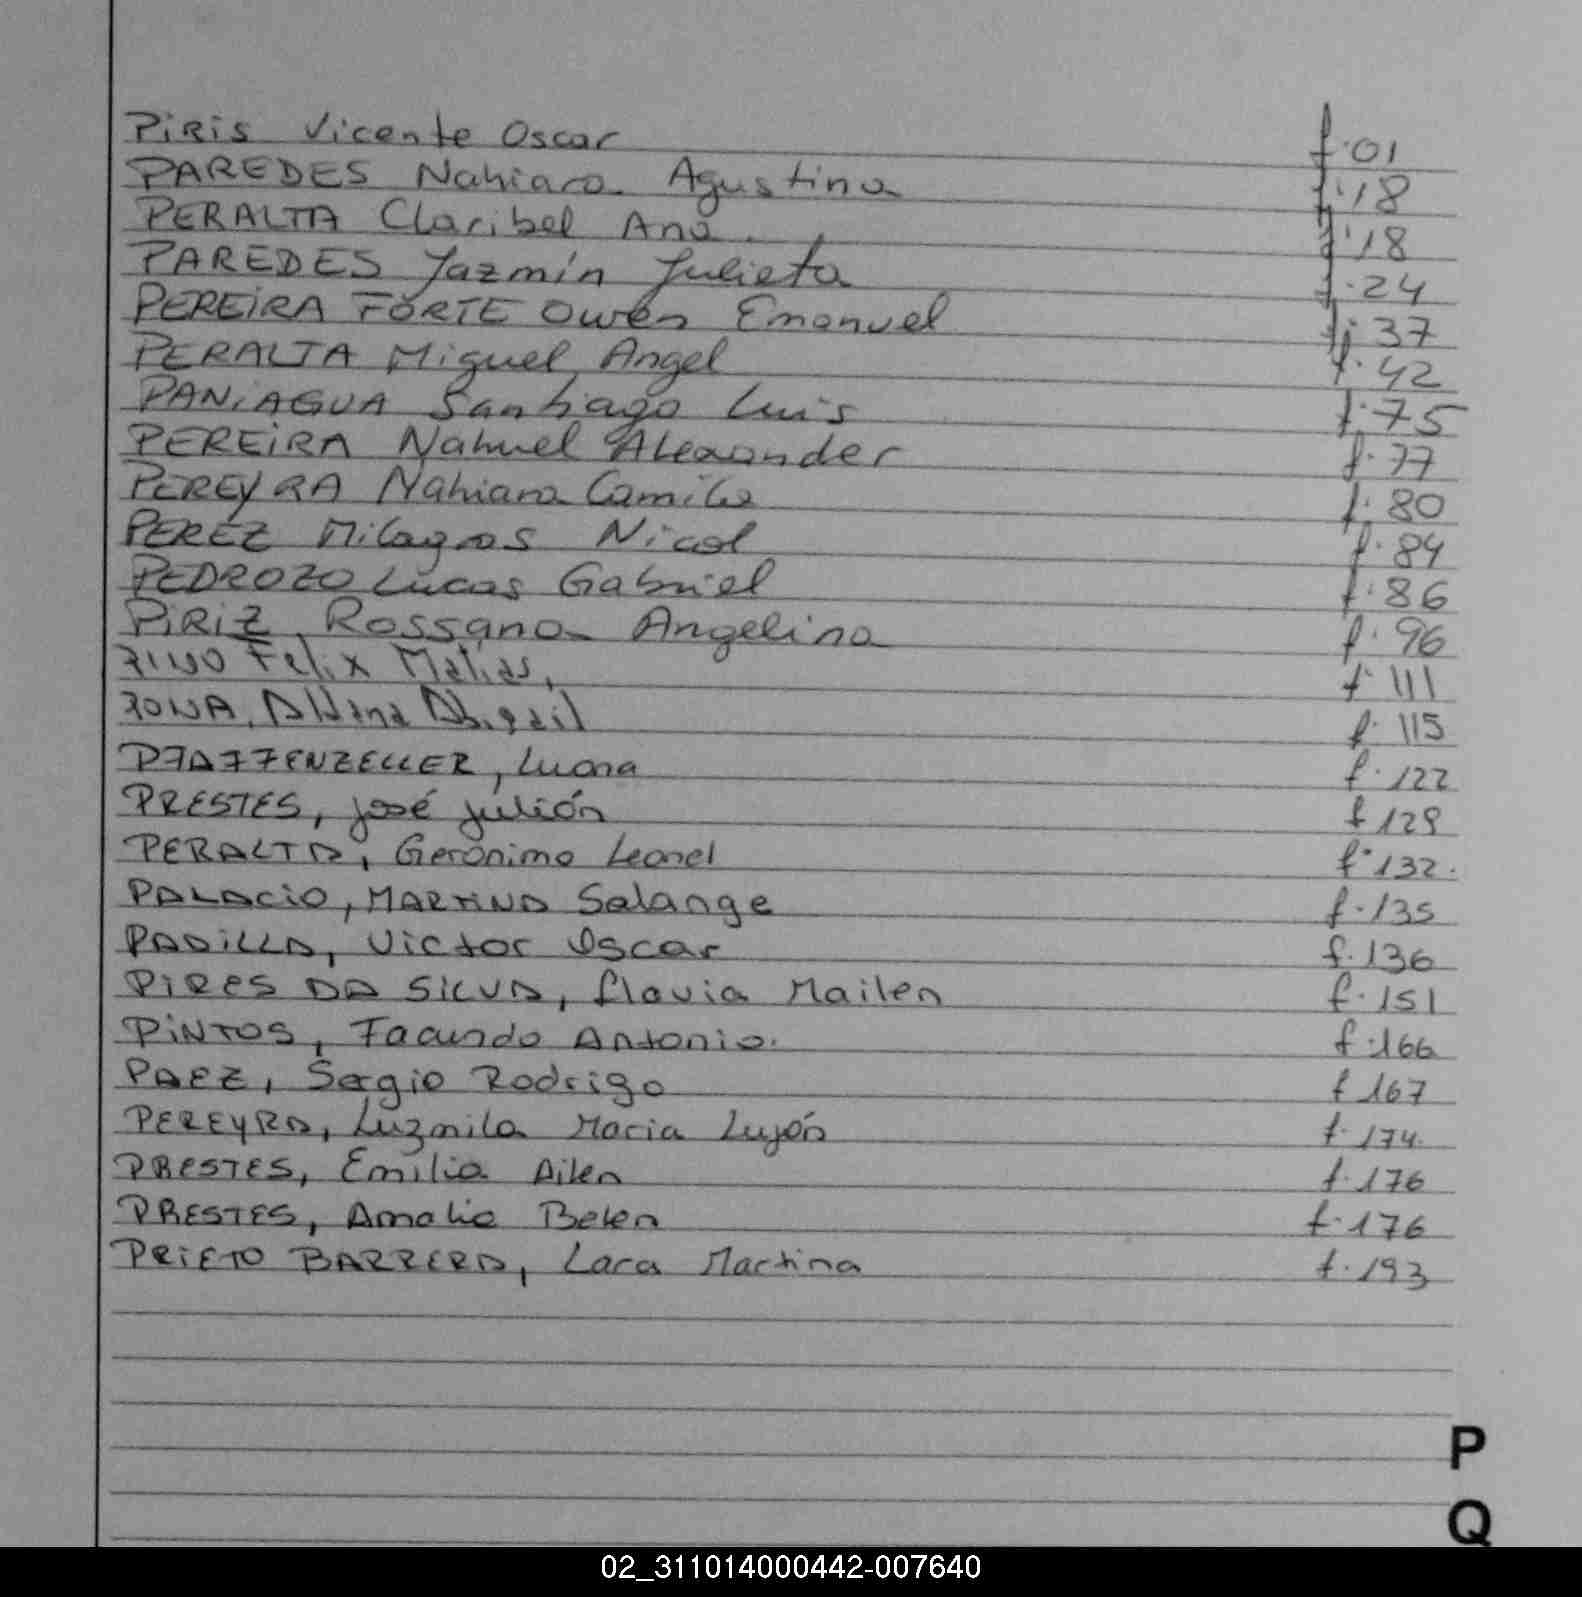 PiRiS Vicente Oscar f.01
PAREDES Nahiara Agustina f.18
PERALTA Claribel Ana. f.18
PAREDES Jazmín Julieta f.24
PEREiRA FORTE Owen Emanuel f. 37
PERALTA Miguel Angel f. 42
PANiAGUA Santiago Luis f. 75
PEREiRA Nahuel Alexander f. 77
PEREyRA Nahiara Camila f. 80
PEREZ Milagros Nicol f. 84
PEDROZO Lucas Gabriel f. 86
PiRiZ Rossana Angelina f. 96
Felix Matias, f. 111
Aldana Abigail f. 115
PFAFFENZELLER, Luana f. 122
PRESTES, José Julián f 129
PERALTA, Gerónimo Leonel f. 132.
PALACiO, MARTINA Solange f. 135
PADiLLA, Victor Oscar f. 136
PiRES DA SiLVA, flavia Mailen f. 151
PiNTOS, Facundo Antonio. f. 166
PAEZ, Sergio Rodrigo f 167
PEREyRA, Luzmila Maria Luján f. 174.
PRESTES, Emilia Ailen f. 176
PRESTES, Amalia Belen f. 176
PRiETO BARRERA, Lara Martina f. 193
P
Q
02_311014000442-007640